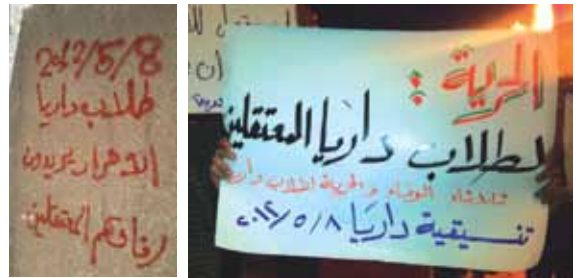 2012/5/8
طلاب داريا
الاحرار يريدون
رفاقهم المعتقلين
الحرية :
لطلاب داريا المعتقلين
ثلاثاء الوفاء والحرية لطلاب داريا
تنسيقية داريا ٢٠١٢/٥/٨